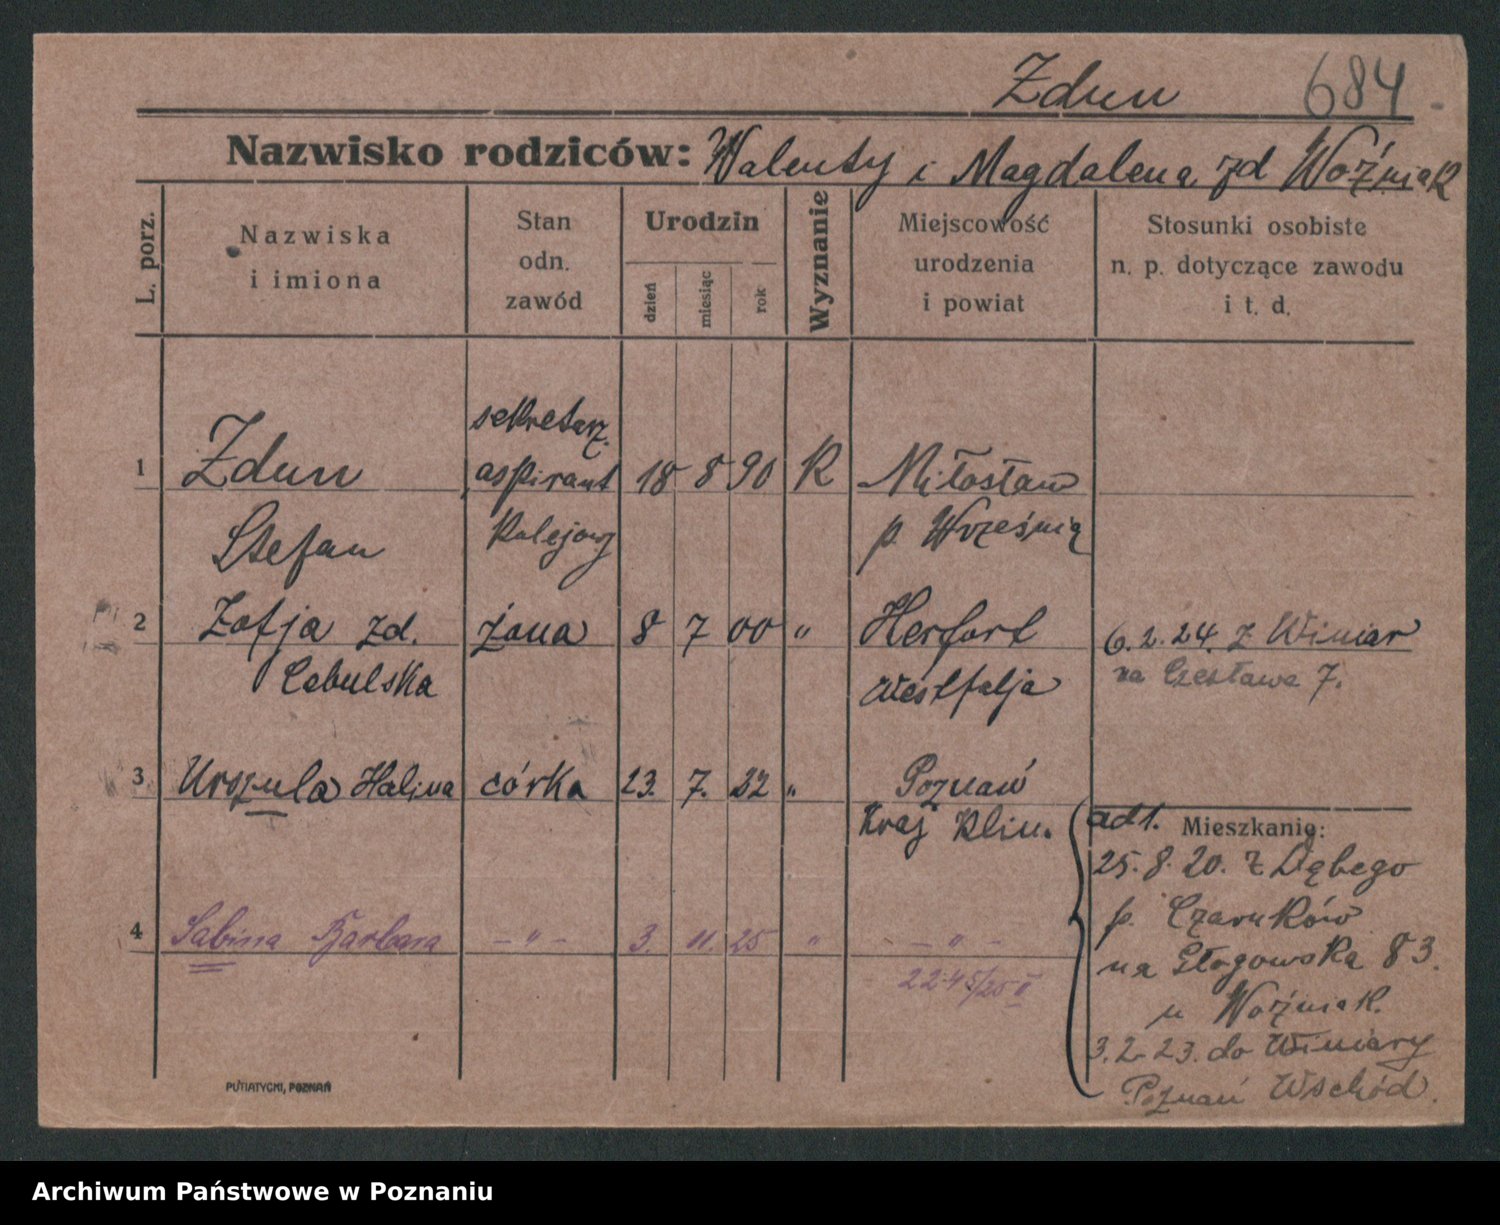 Zdun 684
Nazwisko rodziców: Walenty i Magdalena zd Woźniak
L. porz.
Nazwiska
i imiona
Stan
odn.
zawód
Urodzin
dzień
miesiąc
rok
Wyznanie
Miejscowość
urodzenia
i powiat
Stosunki osobiste
n. p. dotyczące zawodu
i t. d.
sekretarz.
1 Zdun aspirant 18 8 90 K Miłosław
Stefan kolejowy p. Września
2 Zofja zd. żona 8 7 00 " Herfort 6.2.24. z Winiar
Cebulska Westfalja na Czesława 7.
3 Urszula Halina córka 23. 7. 22 " Poznań
Kraj Klin.
ad1. Mieszkanie:
25.8.20. z Dębego
p. Czarnków
4 Sabina Barbara – " – 3. 11. 25 " – " –
na Głogowska 83.
2245/25 II
u Woźniak.
3.2.23. do Winiary
Poznań Wschód.
PUTIATYCKI, POZNAŃ
Archiwum Państwowe w Poznaniu